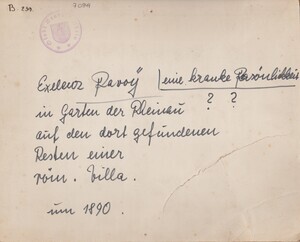 B. 239.
Exelenz "Ravoy" | eine kranke Persönlichkeit
in Garten der Rheinau ? ?
auf den dort gefundenen
Resten einer
röm. Villa.
um 1890.